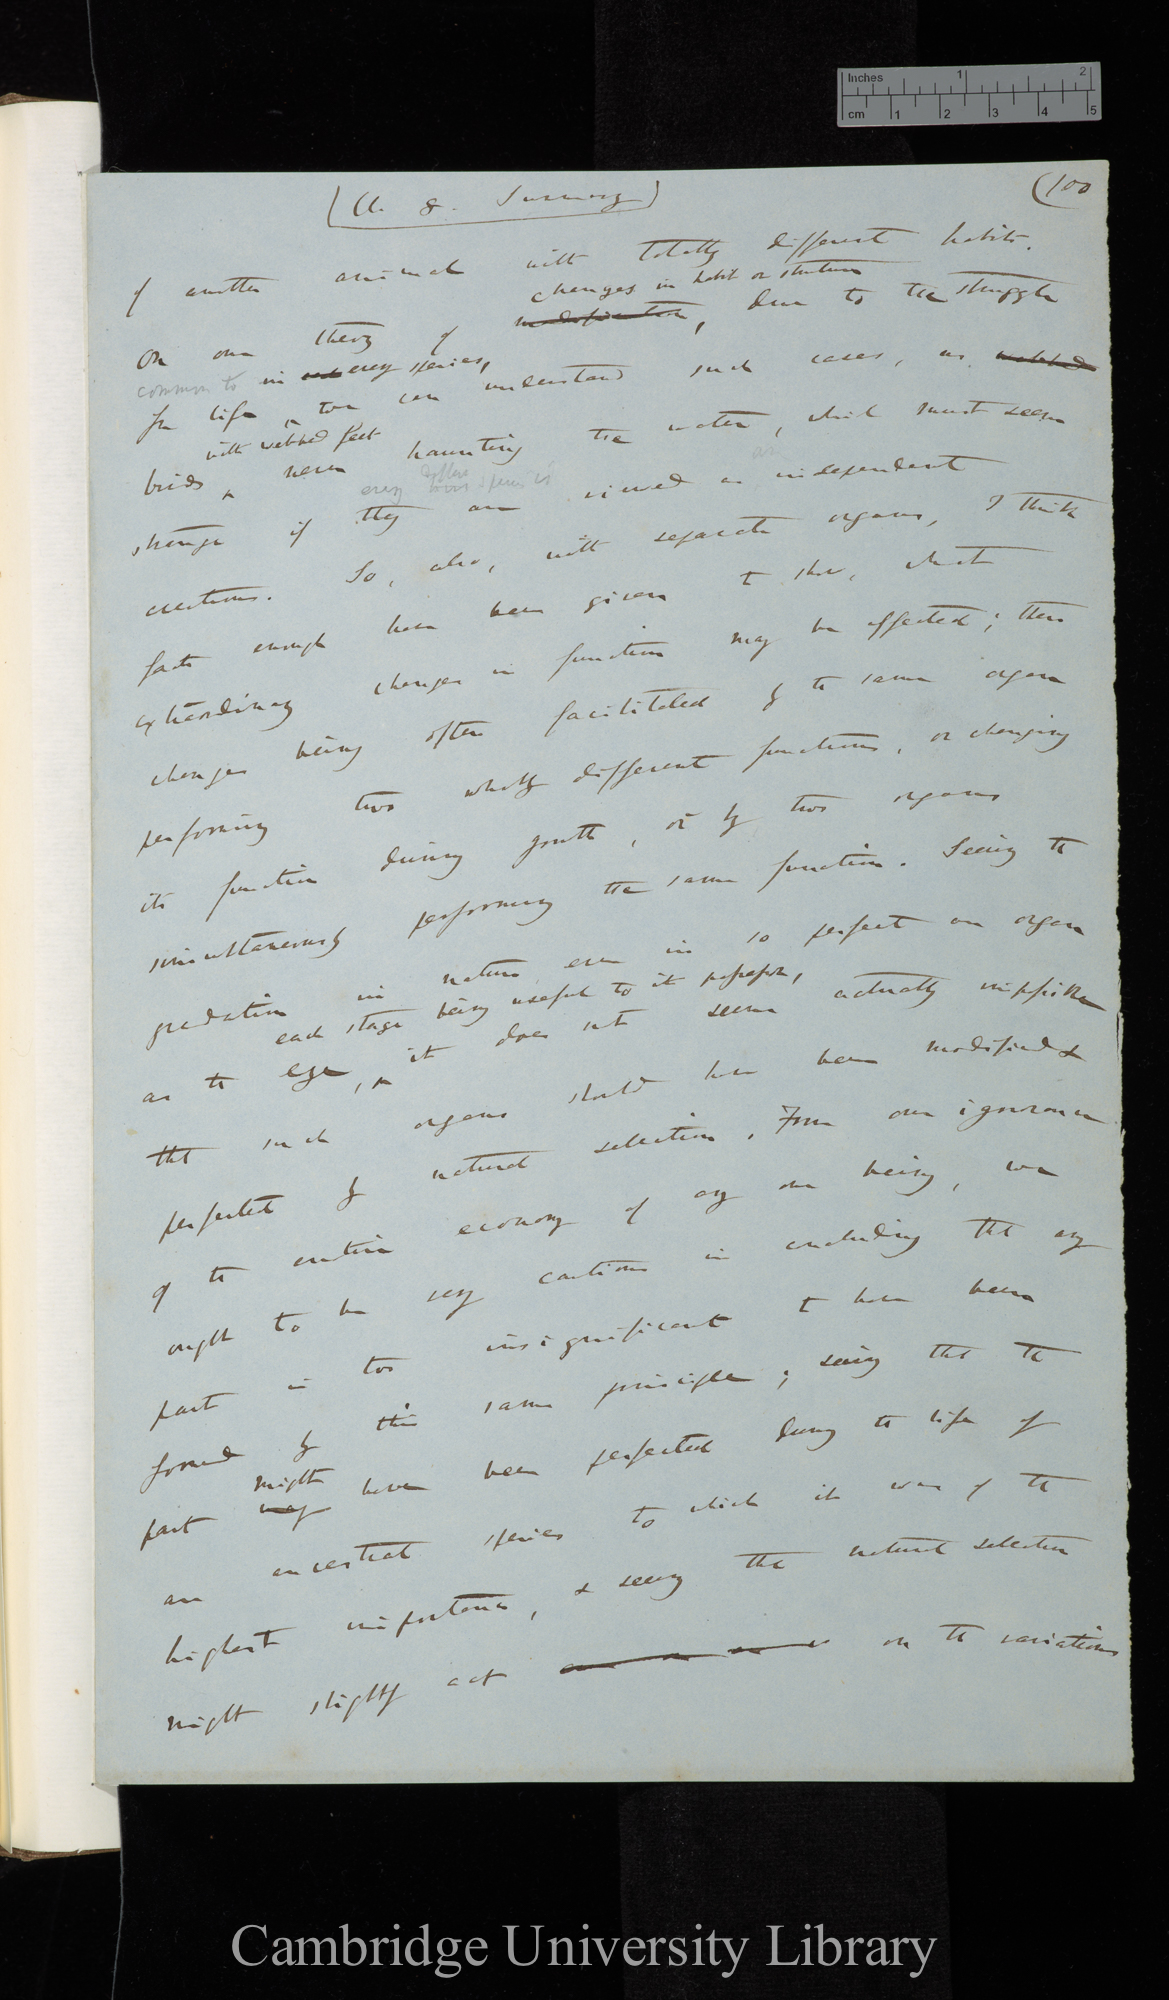 Inches 1 2
cm 1 2 3 4 5
(Ch. 8. Summary)
(100
of another animal with totally different habits.
changes in habit or structure
On our theory of modification, due to the struggle
common to in each every species,
for life, we can understand such cases, as webbed
with webbed feet
birds, never haunting the water, which must seem
every species is
strange if they are viewed as independent
creations. So, also, with separate organs, I think
facts enough have been given to show, what
extraordinary changes in function may be effected; these
changes being often facilitated by the same organ
performing two wholly different functions, or changing
its function during growth, or by two organs
simultaneously performing the same function. Seeing the
gradation in nature even in so perfect an organ
each stage being useful to its possessor,
as the eye, it does not seem actually impossible
that such organs should have been modified &
perfected by natural selection. From our ignorance
of the entire economy of any one being, we
ought to be very cautious in concluding that any
part is too insignificant to have been
formed by this same principle; seeing that the
might
part may have been perfected during the life of
an ancestral species to which it was of the
highest importance, & seeing that natural selection
might slightly act on the variations
Cambridge University Library